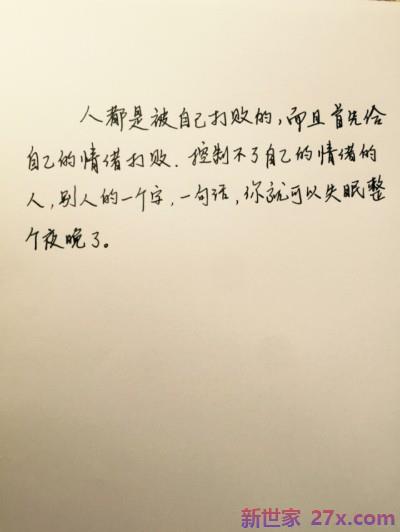 人都是被自己打败的，而且首先给
自己的情绪打败．控制不了自己的情绪的
人，别人的一个字，一句话，你就可以失眠整
个夜晚了。
新世家 27x.com